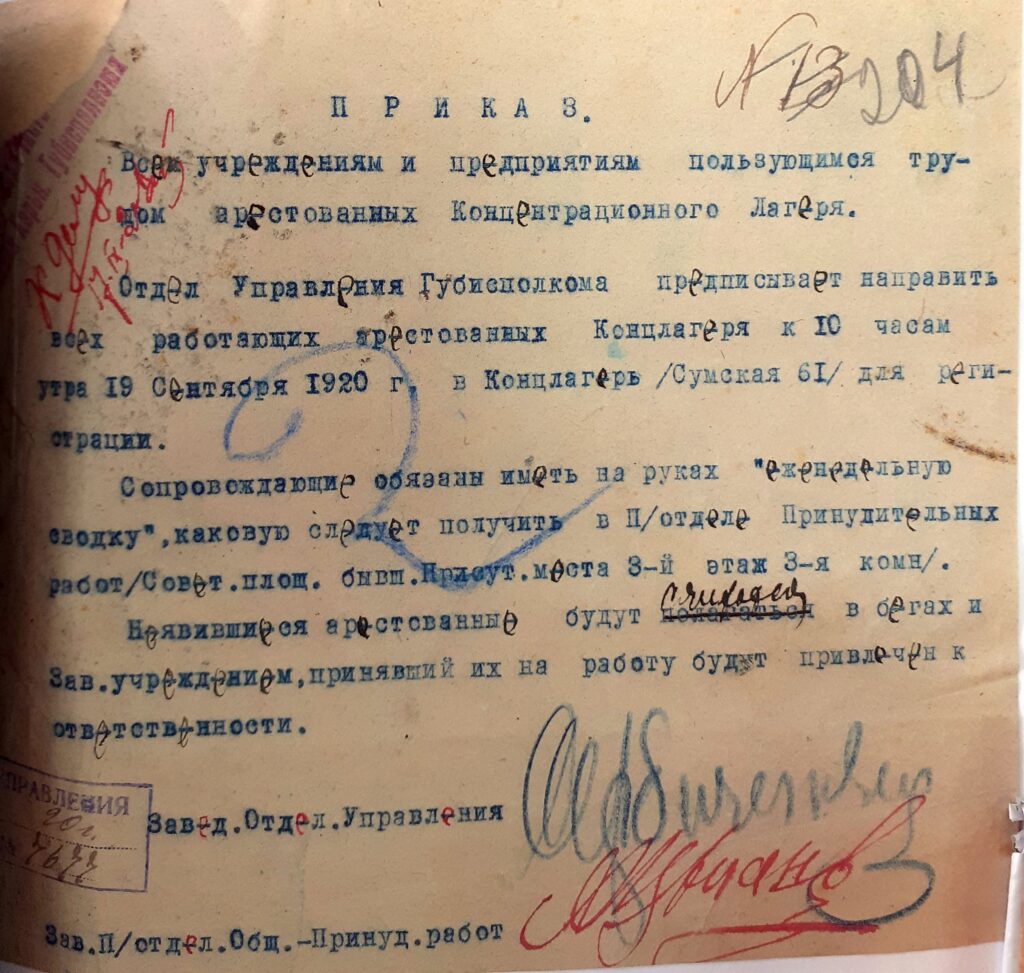 № 13 204
П Р И К А З.
Всем учреждениям и предприятиям пользующимся тру-
дом арестованных Концентрационного Лагеря.
К делу
Отдел Управления Губисполкома предписывает направить
всех работающих арестованных Концлагеря к 10 часам
утра 19 Сентября 1920 г. в Концлагерь /Сумская 61/ для реги-
страции.
2
Сопровождающие обязаны иметь на руках "еженедельную
сводку",каковую следует получить в П/отделе Принудительных
работ/Совет.площ. бывш.Присут.места 3-й этаж 3-я комн/.
считаться
Неявившиеся арестованные будут полагаться в бегах и
Зав.учреждением,принявший их на работу будут привлечен к
ответственности.
УПРАВЛЕНИЯ
20 г.
7677
Завед.Отдел.Управления
Зав.П/отдел.Общ.-Принуд.работ